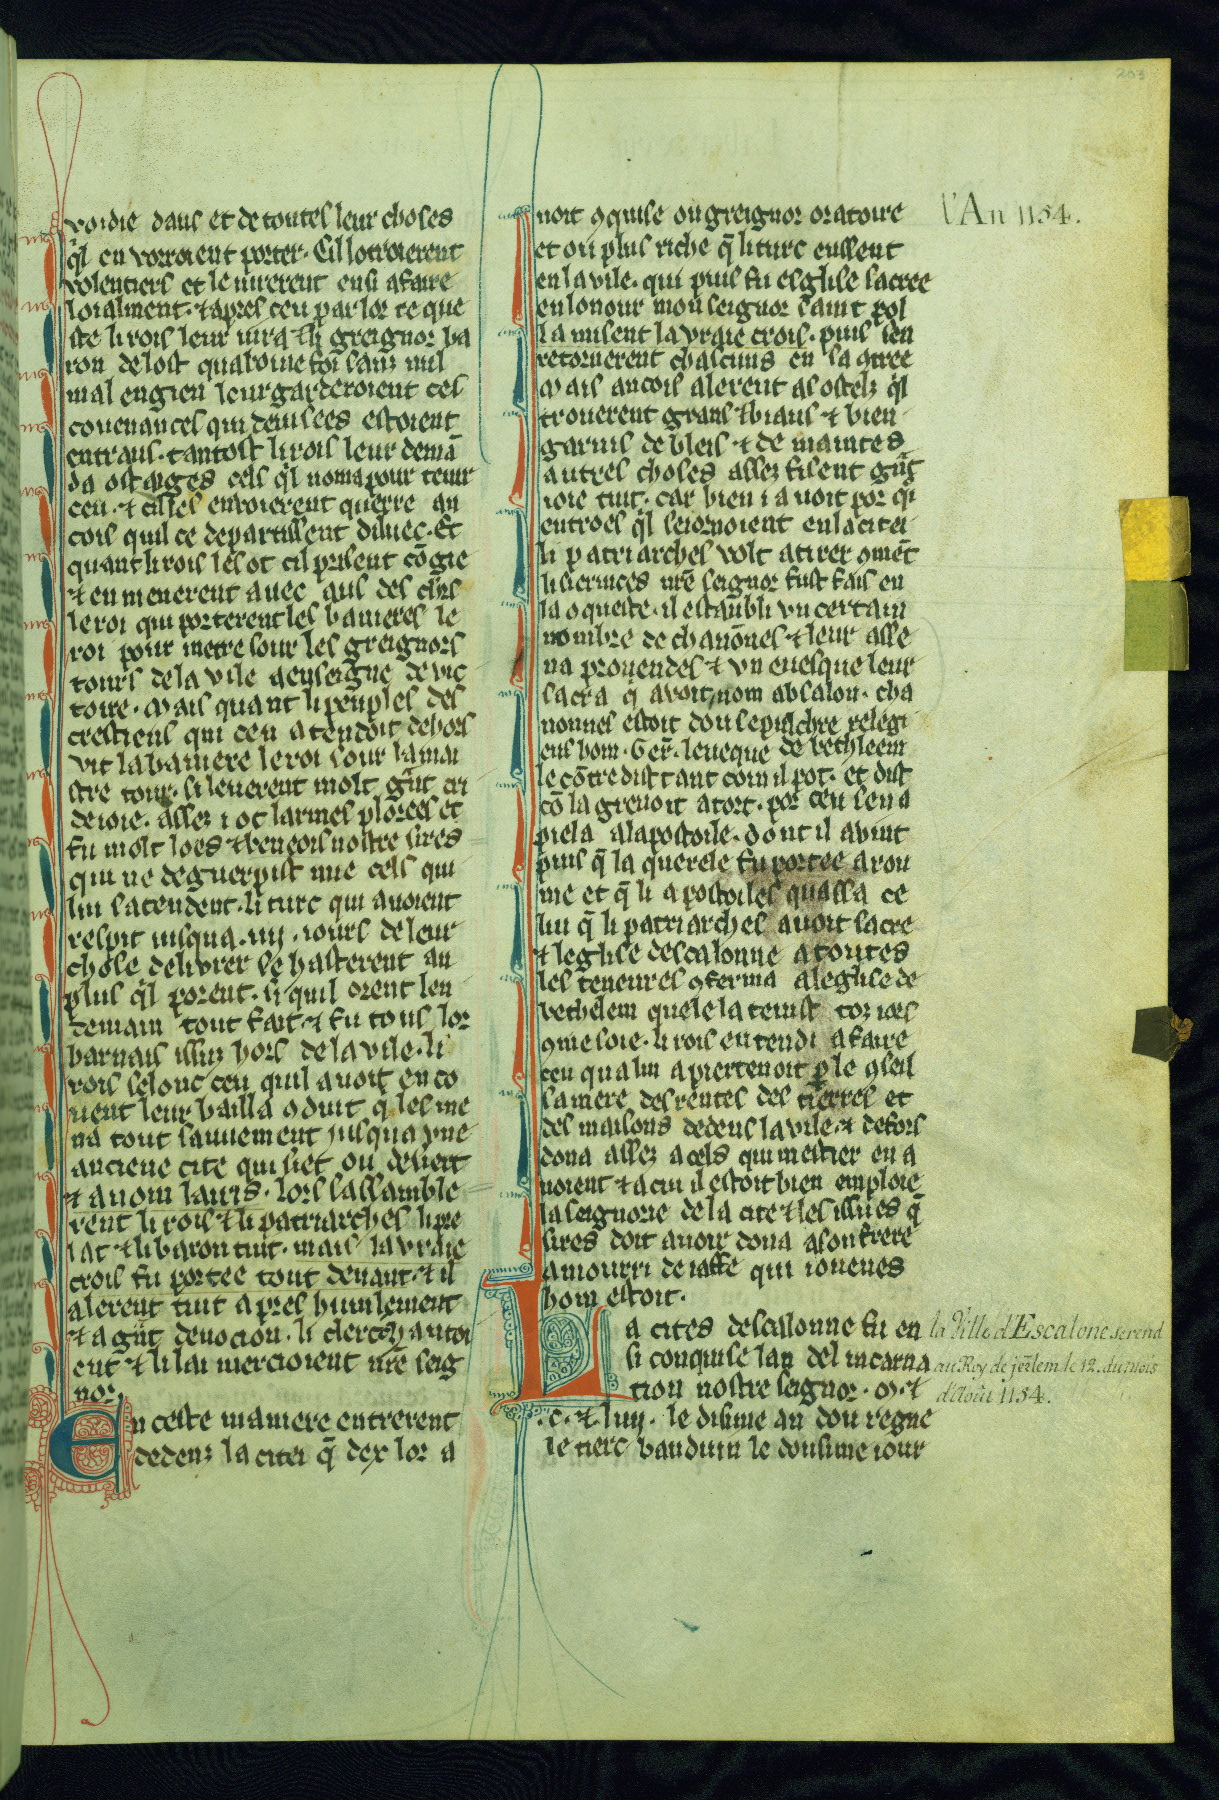 203
voidie dauls et de toutes leur choses
q̃l en vorroient porter. Cil lotroierent
volentiers et le iurerent ensi a faire
loialment. ⁊ apres ceu par lor re que
ste li rois leur iura ⁊ li greignor ba
ron de lost qua bone foi sanz nul
mal engien leur garderoient ces
couenances qui deuisees estoient
entraus. tantost li rois leur demā
da ostaiges cels q̃l noma pour tenir
ceu. ⁊ cil les enuoierent querre an
cois quil ce departissent diluec. Et
quant li rois les ot cil prisent cōgie
⁊ en menerent auec aus des chrs
le roi qui porterent les banieres le
roi pour metre sour les greignors
tours de la vile a enseigne de vic
toire. Mais quant li peuples des
crestiens qui ceu atendoit dehors
vit la baniere le roi sour la mai
stre tour. si leuerent molt grāt cri
de ioie. assez i ot larmes plorees et
fu molt loes ⁊ beneois nostre sires
qui ne deguerpist mie cels qui
lui satendent. li turc qui auoient
respit iusqua .iiij. iours de leur
chose deliurer se hasterent au
plus q̃l porent. si quil orent len
demain tout fait ⁊ fu tous lor
harnais issuz hors de la vile. li
rois selonc ceu quil auoit en co
uent leur bailla 9duit q̃ les me
na tout sauuement iusqua vne
anciene cite qui siet ou desert
⁊ a nom lauris. lors sassamble
rent li rois ⁊ li patriarches li pre
lat ⁊ li baron tuit. mais la vraie
crois fu portee tout deuant. ⁊ il
alerent tuit apres humlement
⁊ a grāt deuocion. li clercz chantoi
ent ⁊ li lai mercioient nr̃e seig
nor.
En ceste maniere entrerent
dedenz la citei q̃ dex lor a
noit 9quise ou greignor oratoire
et ou plus riche q̃ li turc eussent
en la vile. qui puis fu esglise sacree
en lonour mon seignor saint pol
la misent la vraie crois. puis sen
retornerent chascuns en sa 9tree
Mais ancois alerent as ostelz q̃l
trouerent grans ⁊ biaus ⁊ bien
garnis de bleis ⁊ de maintes
autres choses assez fisent grāt
ioie tuit. car bien i auoit por q̃i
entroes q̃l seiornoient en la citei
li patriarches volt atirer 9mēt
li seruices nr̃e seignor fust fais en
la 9queste. il establi vn certain
nombre de chanōnes ⁊ leur asse
na prouendes ⁊ vn euesque leur
sacra q̃ auoit nom absalon. cha
nonnes estoit dou sepulchre relegi
eus hom. Ger̃. leueque de bethleem
le cōtredist tant com il pot. et dist
cō la greuoit a tort. por ceu sen a
piela a lapostoile. dont il auint
puis q̃ la querele fu portee a rou
me et q̃ li apostoiles quassa ce
lui q̃ li patriarches auoit sacre
⁊ leglise descalonne a toutes
les teneures 9ferma a leglise de
bethelem quele la tenist toz iors
9me soie. li rois entendi a faire
ceu qua lui apiertenoit p̱ le 9seil
sa mere des rentes des tierres et
des maisons dedens la vile ⁊ defors
dona assez a cels qui mestier en a
uoient ⁊ a cui il estoit bien emploie
la seignorie de la cite ⁊ les issues q̃
sires doit auoir dona a son frere
amourri de iaffe qui iouenes
hom estoit.
La cites descallonne fu en
si conquise lan del incarna
tion nostre seignor .m. ⁊
.c. ⁊ liiij. le disime an dou regne
le tierc bauduin le dousime iour
l'An 1154.
la Ville d'Escalone se rend
au Roy de jer̃lem le 12. du mois
d'Août 1154.